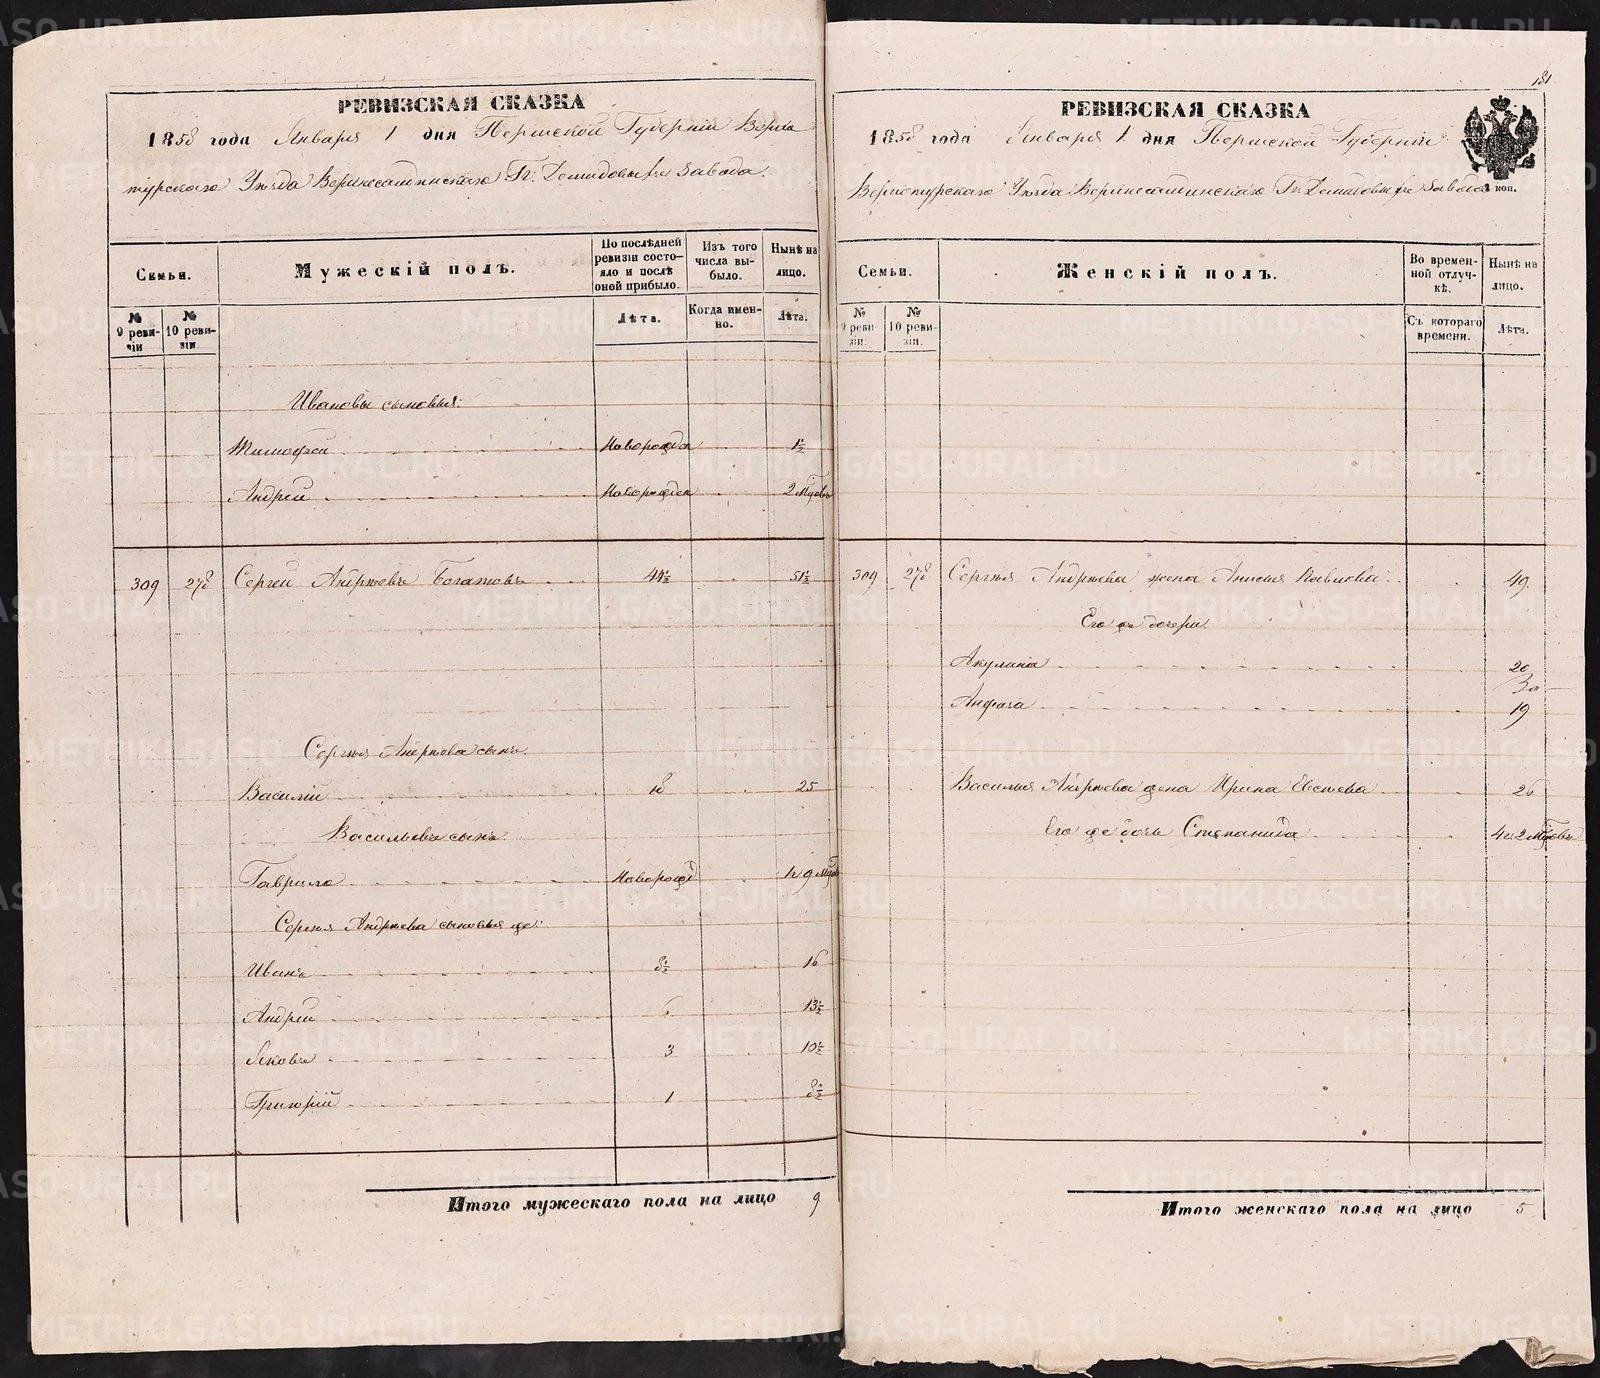 РЕВИЗСКАЯ СКАЗКА
1858 года Января 1 дня Пермской Губерніи Верхо
турскаго Уѣзда Верхнесалдинскаго Гг. Демидовыхъ Завода.
Семьи.
Мужескій полъ.
По послѣдней ревизіи состояло и послѣ оней прибыло.
Изъ того числа выбыло.
Нынѣ на лицо.
№ 9 ревизіи
№ 10 ревизіи
Лѣта.
Когда именно.
Лѣта.
Ивановы сыновья:
Тимофей Новорожден 1½
Андрей Новорожден 2 Мцовъ
309 278 Сергей Андрѣевъ Богатовъ 44½ 51½
Сергѣя Андрѣева сынъ.
Василій 18 25
Васильевъ сынъ.
Гаврило Новорожд 9 Мцов
Сергѣя Андрѣева сыновья же:
Иванъ 8½ 16
Андрей 6 13½
Яковъ 3 10½
Григорій 1 8½
Итого мужескаго пола на лицо 9
181
РЕВИЗСКАЯ СКАЗКА
1858 года Января 1 дня Пермской Губерніи
Верхотурскаго Уѣзда Верхнесалдинскаго Гг. Демидовыхъ Завода
коп.
Семьи.
Женскій полъ.
Во временной отлучкѣ.
Нынѣ на лицо.
№ 9 ревизіи.
№ 10 ревизіи.
Съ котораго времени.
Лѣта.
309 278 Сергѣя Андрѣева жена Анисья Павлова 49
Его же дочери.
Акулина 20
Анфиса 19
Василья Андрѣева жена Ирина 26
Его же дочь Степанида 4 и 2 Мцовъ
Итого женскаго пола на лицо 5
METRIKI.GASO-URAL.RU